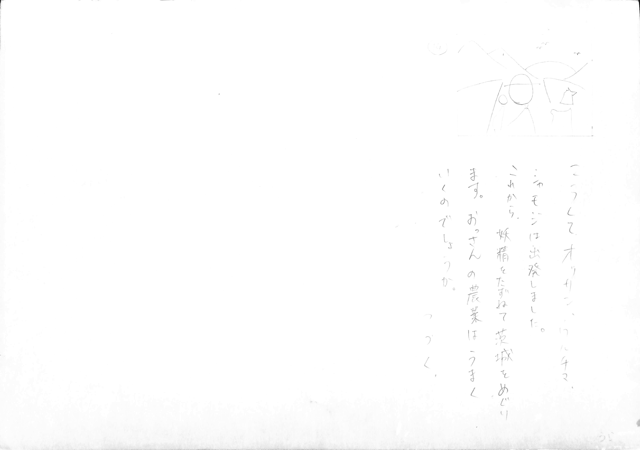 こうしてオッサン、
シャモジは出発しました。
これから、妖精をたずねて茨城をめぐり
ます。おっさんの農業はうまく
いくのでしょうか。
つづく。